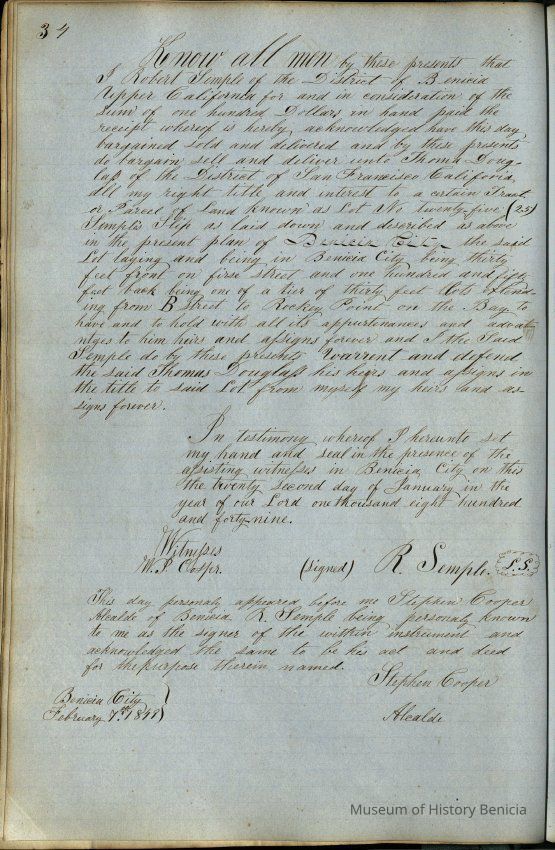 34
Know all men by these presents that
I Robert Semple of the District of Benicia
Upper California for and in consideration of the
sum of one hundred Dollars in hand paid the
receipt whereof is hereby acknowledged have this day
bargained sold and delivered and by these presents
do bargain sell and deliver unto Thomas Doug-
lass of the District of San Francisco California,
all my right title and interest to a certain Tract
or Parcel of Land known as Lot No twenty-five (25)
Semples Slip as laid down and described as above
in the present plan of Benicia City the said
Lot laying and being in Benicia City being thirty
feet front on first street and one hundred and fifty
feet back being one of a tier of thirty feet lots extend-
ing from B Street to Rockey Point on the Bay to
have and to hold with all its appurtenances and advan
ntges to him heirs and assigns forever and I the said
Semple do by these presents Warrent and defend
the said Thomas Douglass his heirs and assigns in
the title to said Lot from myself my heirs and as-
signs forever.
In testimony whereof I hereunto set
my hand and seal in the presence of the
assisting witnesses in Benicia City on this
the twenty second day of January in the
year of our Lord one thousand eight hundred
and forty-nine.
Witnesses
W. P. (signed) R. Semple. L.S.
This day personaly appeared before me Stephen Cooper
Alcalde of Benicia R. Semple being personaly known
to me as the signer of the within instrument and
acknowledged the same to be his act and deed
for the purpose therein named.
Stephen Cooper
Benicia City
February 7th 1849) Alcalde
Museum of History Benicia